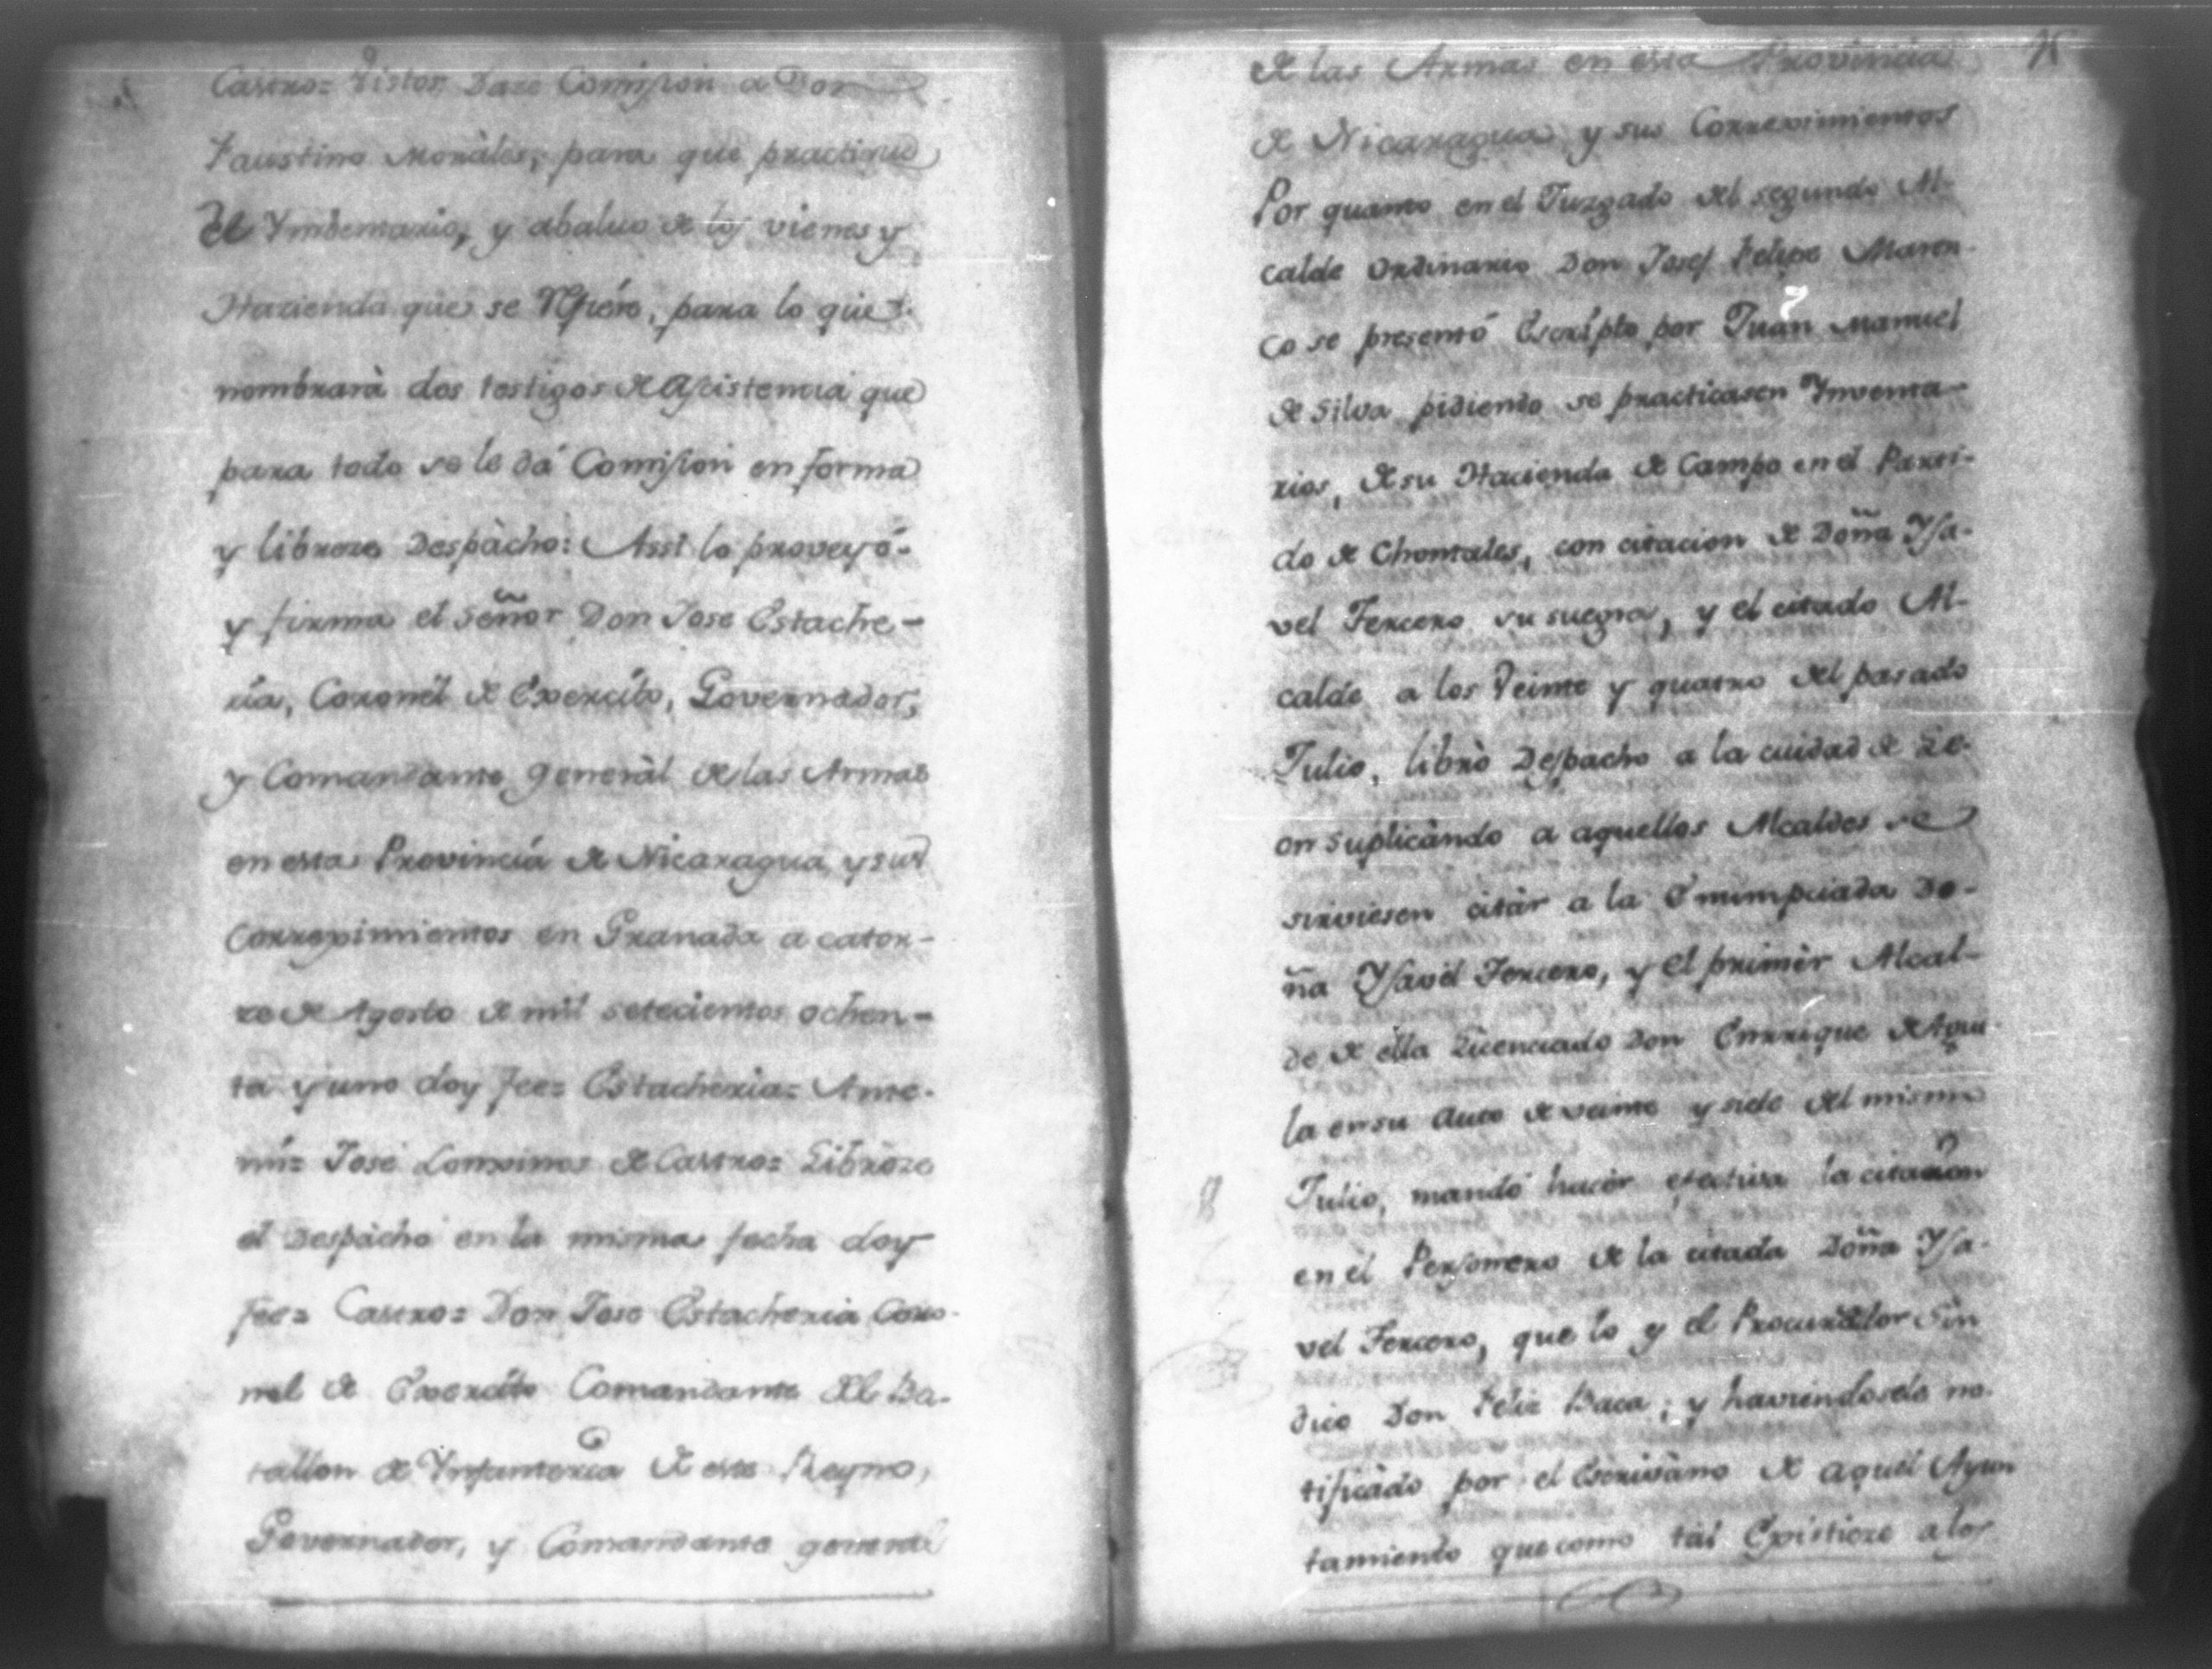 Castro= Vistos Dase Comission a Don
Faustino Moráles, para que practique
el Ymbentario, y abaluo de los vienes y
Hacienda que se Refiére, para lo que
nombrará dos testigos de Assistencia que
para todo se le dá Comission en forma
y librese Despàcho: Assi lo proveyó
y firma el señor Don Jose Estache-
ria, Coronél de Exercíto, Governador,
y Comandante generàl de las Armas
en esta Provincia de Nicaragua, y sus
Correximientos en Granada a cator-
ze de Agosto de mil setecientos ochen-
ta y uno doy fee= Estacheria= Ante
mi= José de Castro= Libróse
el Despàcho en la misma fecha doy
fee= Castro= Don Jose Estacheria Coro-
nel de Exercíto Comandante del Ba-
tallon de Ynfanteria de este Reyno,
Governador, y Comandante general
de las Armas en esta Provincia
de Nicaragua y sus Correximientos
Por quanto en el Juzgado del segundo Al-
calde Ordinario Don Josef Felipe Maren-
co se presentó Escripto por Juan Manuel
de Silva pidiendo se practicasen Ynventa-
rios, de su Hacienda de Campo en el Parti-
do de Chontales, con citacion de Doña Ysa-
vel Tercero su suegra, y el citado Al-
calde a los Veinte y quatro del pasado
Julio, libró Despacho a la ciudad de Le-
on suplicàndo a aquellos Alcaldes se
sirviesen citàr a la Enumpciada Do-
ña Ysavél Tercero, y el primér Alcal-
de de ella Licenciado Don Enrrique de Agui
la en su Auto de veinte y siete del mismo
Julio, mandó hacér efectiva la citacion
en el Personero de la citada Doña Ysa-
vel Tercero, que lo y el Procurador Sin
dico Don Feliz Baca; y haviéndosele no-
tificàdo por el Escrivàno de aquel Ayun
tamiento que como tàl Existiere a los